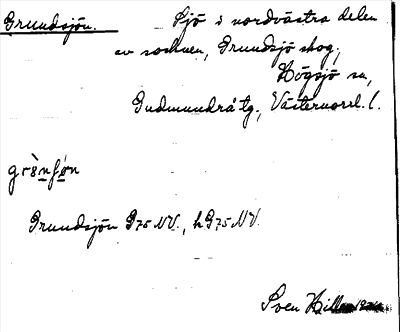 Grundsjön. Sjö i nordvästra delen
av socknen, Grundsjö skog,
Högsjö sn,
Gudmundrå tg., Västernorrl. l.
Grundsjön G75 NV., h G75 NV.
Sven